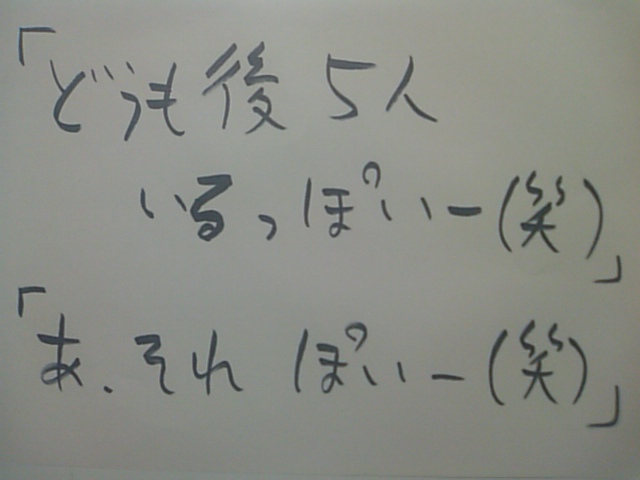 「どうも後5人
いるっぽいー(笑)」
「あ、それ ぽいー(笑)」